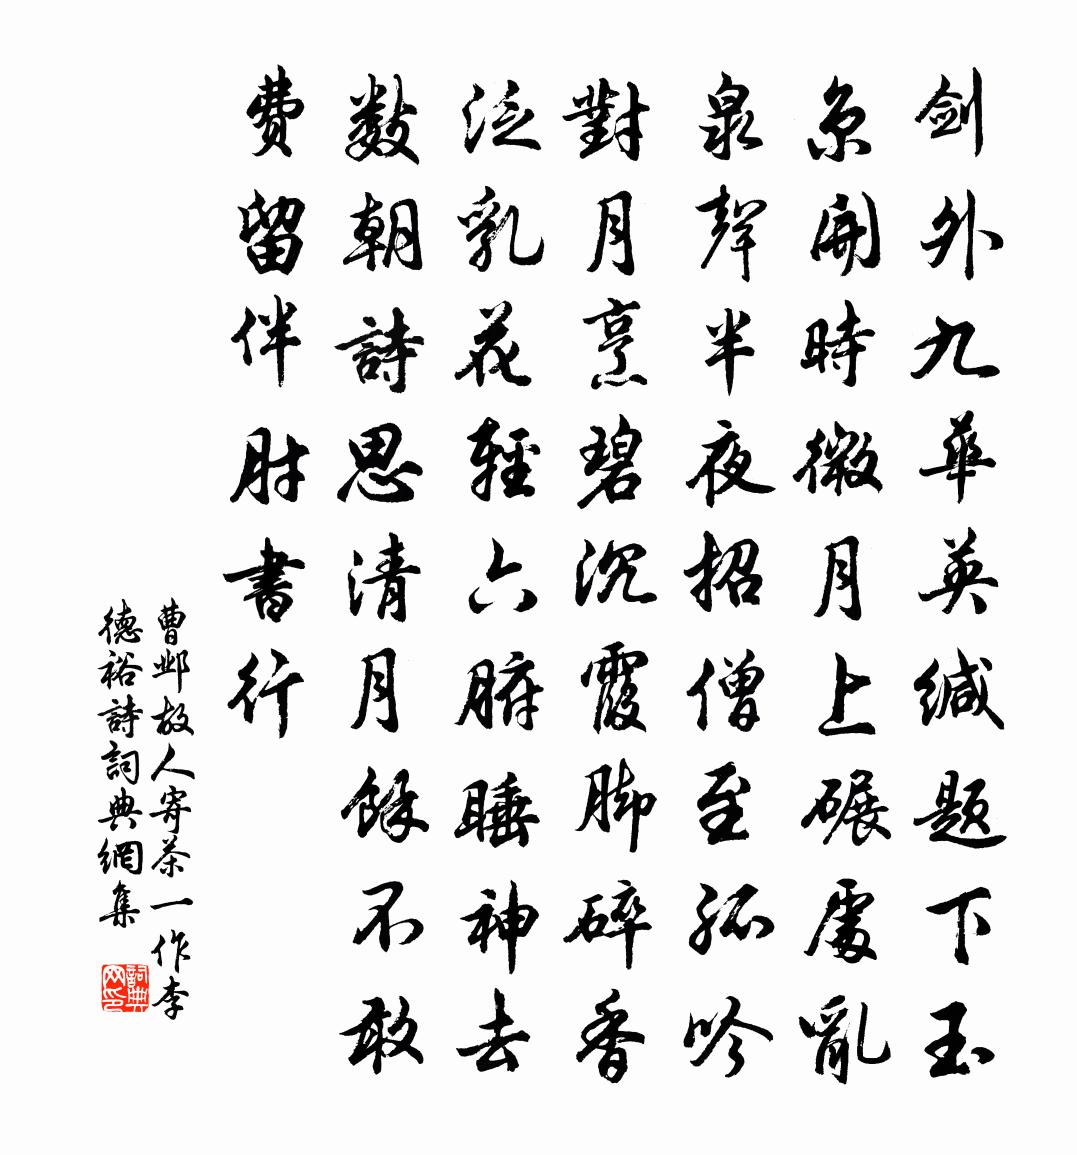 剑外九華英缄题下玉
京開時微月上碾處亂
泉聲半夜招僧至孤吟
對月烹碧沉霞脚碎香
泛乳花輕六腑睡神去
數朝詩思清月餘不敢
費留伴肘書行
曹邺故人寄茶一作李
德裕詩詞典網集
詞典网印